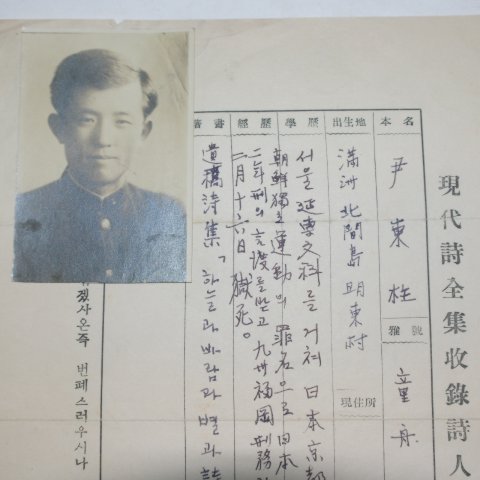 現代詩全集收錄詩人
本名
尹東柱
雅號
童舟
出生地
滿洲 北間島 明東村
現住所
學歷
서울 延專文科를 거쳐 日本京都
經歷
朝鮮獨立運動의 罪名으로 日本
二年刑의 言渡를 받고 九州福岡刑務
二月十六日 獄死。
著書
遺稿詩集「하늘과 바람과 별과 詩
사온즉 번폐스러우시나